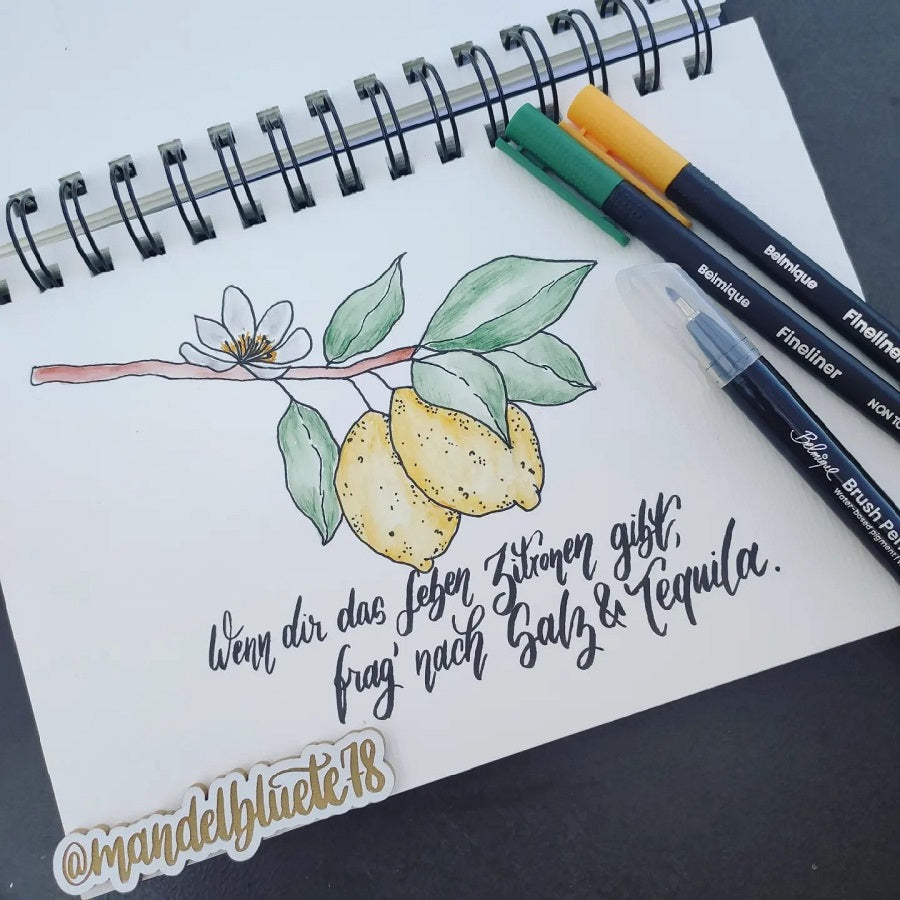 Belmique Fineliner
Belmique Fineliner NON TO
Belmique Brush Pen
Water-based pigment
Wenn dir das Leben Zitronen gibt,
frag' nach Salz & Tequila.
@mandelbluete78